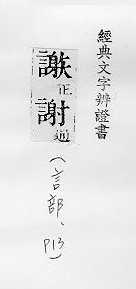 經典文字辨證書
正
謝通
(言部、P13)